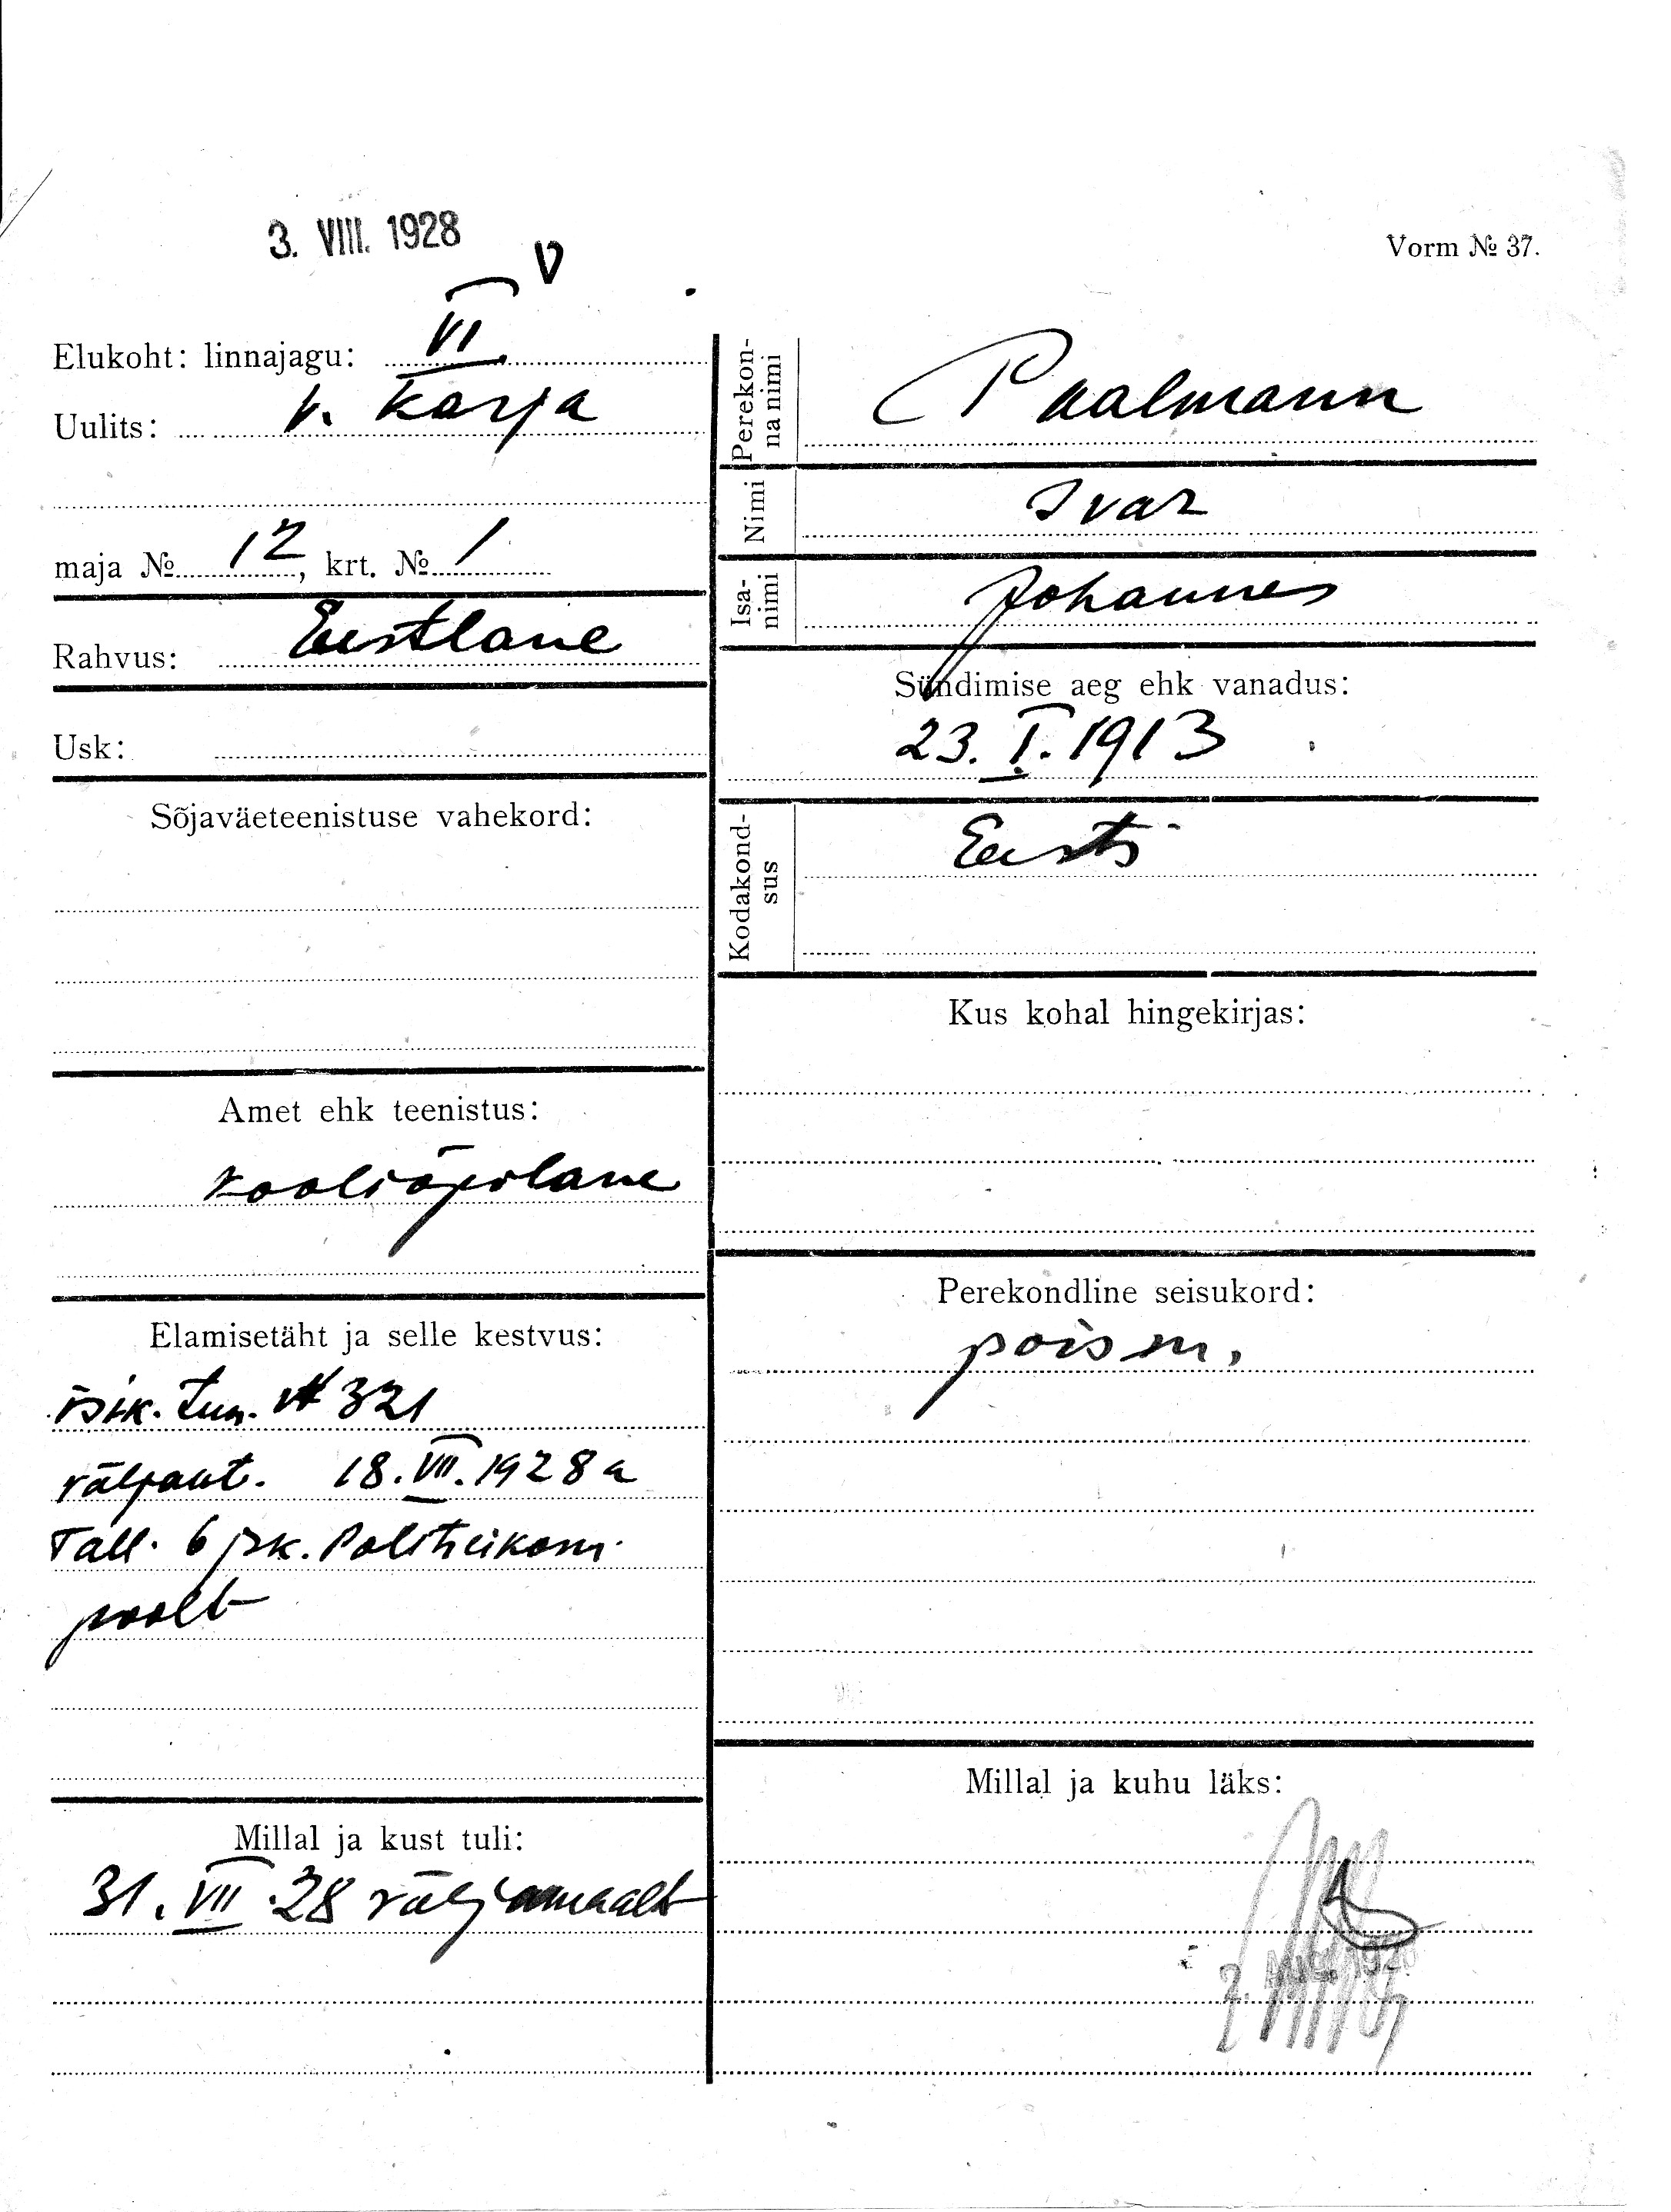 3. VIII. 1928
V
Vorm № 37.
Elukoht: linnajagu: VI
Uulits: V. Karja
maja № 12, krt. № 1
Rahvus: Eestlane
Usk:
Sõjaväeteenistuse vahekord:
Amet ehk teenistus:
kooliõpilane
Elamisetäht ja selle kestvus:
isik. tun. № 321
väljaant. 18. VII. 1928 a
Tall. 6 jsk. Politseikom.
poolt
Millal ja kust tuli:
31. VII. 28 väljamaalt
Perekonna nimi
Paalmann
Nimi
Ivar
Isanimi
Johannes
Sündimise aeg ehk vanadus:
23. I. 1913
Kodakondsus
Eesti
Kus kohal hingekirjas:
Perekondline seisukord:
poism.
Millal ja kuhu läks: